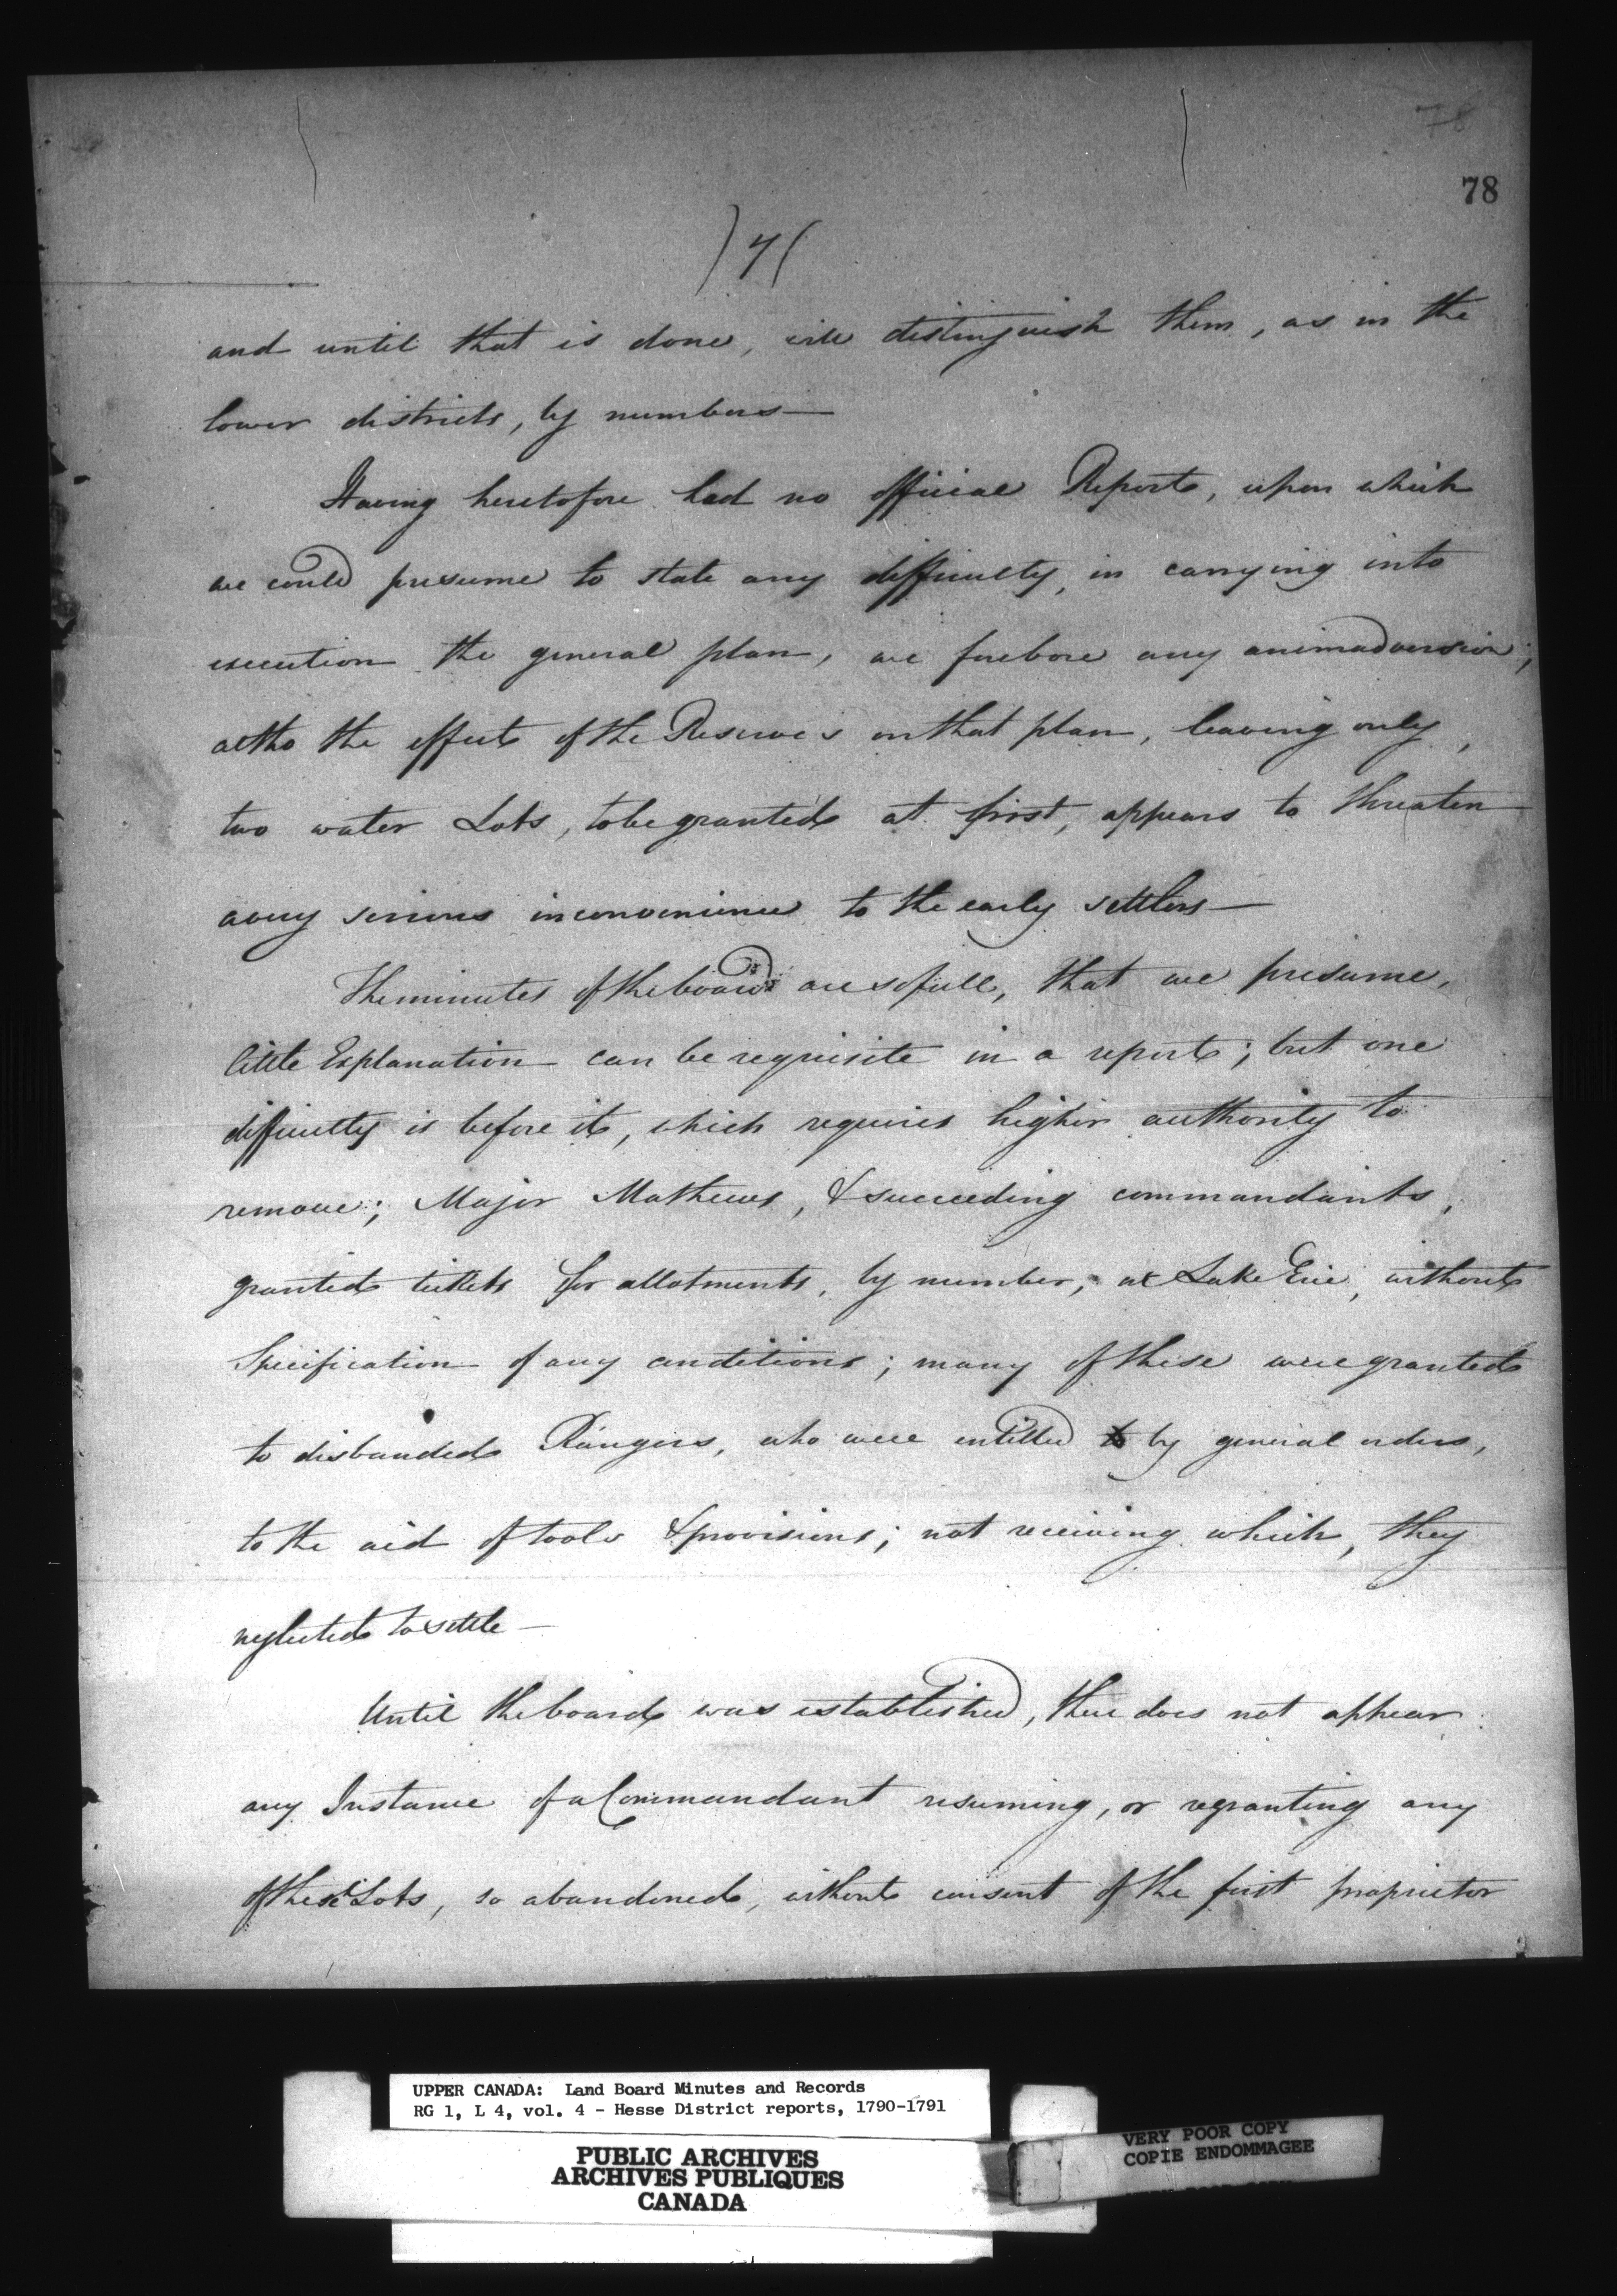 78
78
)7(
and until that is done, will distinguish them, as in the
lower districts, by numbers—
Having heretofore had no official Report, upon which
we could presume to state any difficulty, in carrying into
execution the general plan, we forebore any animadversion;
altho the effect of the Reserves on that plan, leaving only,
two water Lots, to be granted at first, appears to threaten
a very serious inconvenience to the early settlers—
The minutes of the board are so full, that we presume,
little Explanation can be requisite in a report; but one
difficulty is before it, which requires higher authority to
remove; Major Mathews, & succeeding commandants,
granted tickets for allotments, by number, at Lake Erie, without
Specification of any conditions; many of these were granted
to disbanded Rangers, who were entitled to by general orders,
to the aid of tools & provisions; not receiving which, they
neglected to settle—
Until the board was established, there does not appear
any Instance of a Commandant resuming, or regranting any
of these Lots, so abandoned, without consent of the first proprietor
UPPER CANADA: Land Board Minutes and Records
RG 1, L 4, vol. 4 - Hesse District reports, 1790-1791
PUBLIC ARCHIVES
ARCHIVES PUBLIQUES
CANADA
VERY POOR COPY
COPIE ENDOMMAGEE